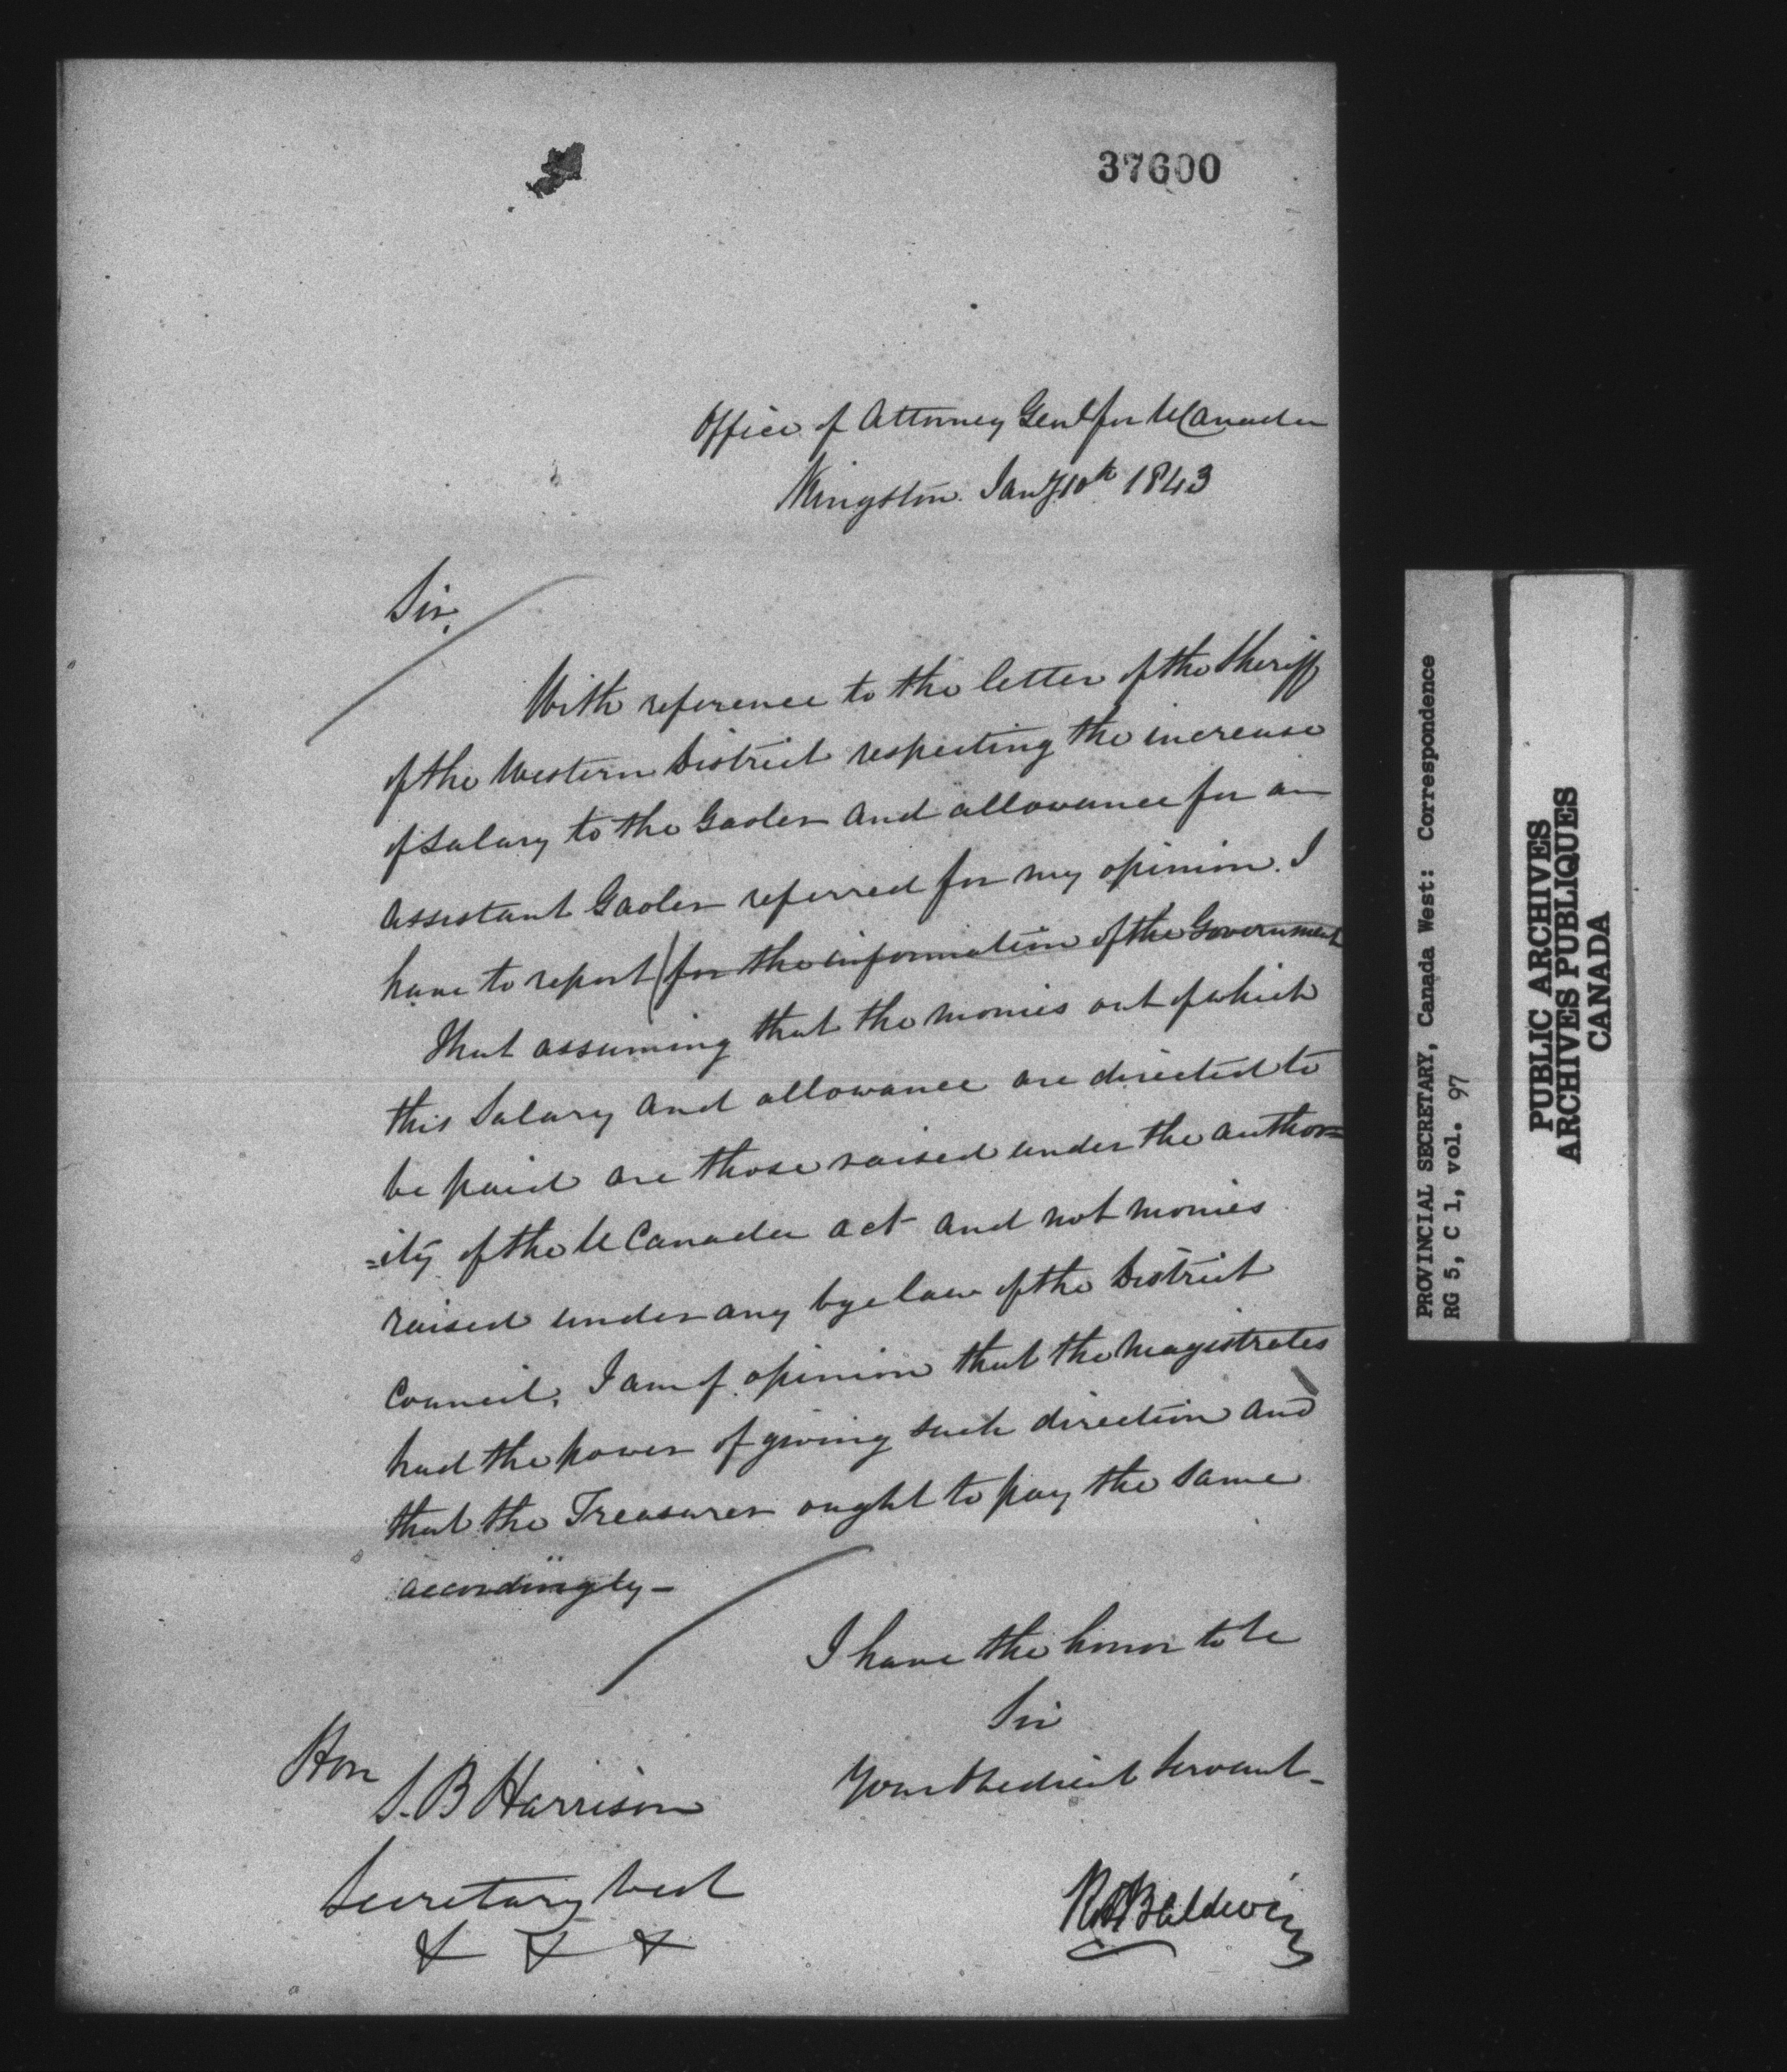 37600
Office of Attorney Genl for U Canada
Kingston. Jany 10th 1843
Sir,
With reference to the letter of the Sheriff
of the Western District respecting the increase
of salary to the Gaoler and allowance for an
assistant Gaoler referred for my opinion. I
have to report (for the information of the Government
that assuming that the monies out of which
this Salary and allowance are directed to
be paid are those raised under the author=
=ity of the U Canada act and not monies
raised under any bye law of the District
Council, I am of opinion that the Magistrates
had the power of giving such direction and
that the Treasurer ought to pay the same
accordingly—
I have the honor to be
Sir
Your Obedient Servant-
Hon
S. B Harrison
Secretary West
& & &
Robt Baldwin
PROVINCIAL SECRETARY, Canada West: Correspondence
RG 5, C 1, vol. 97
PUBLIC ARCHIVES
ARCHIVES PUBLIQUES
CANADA